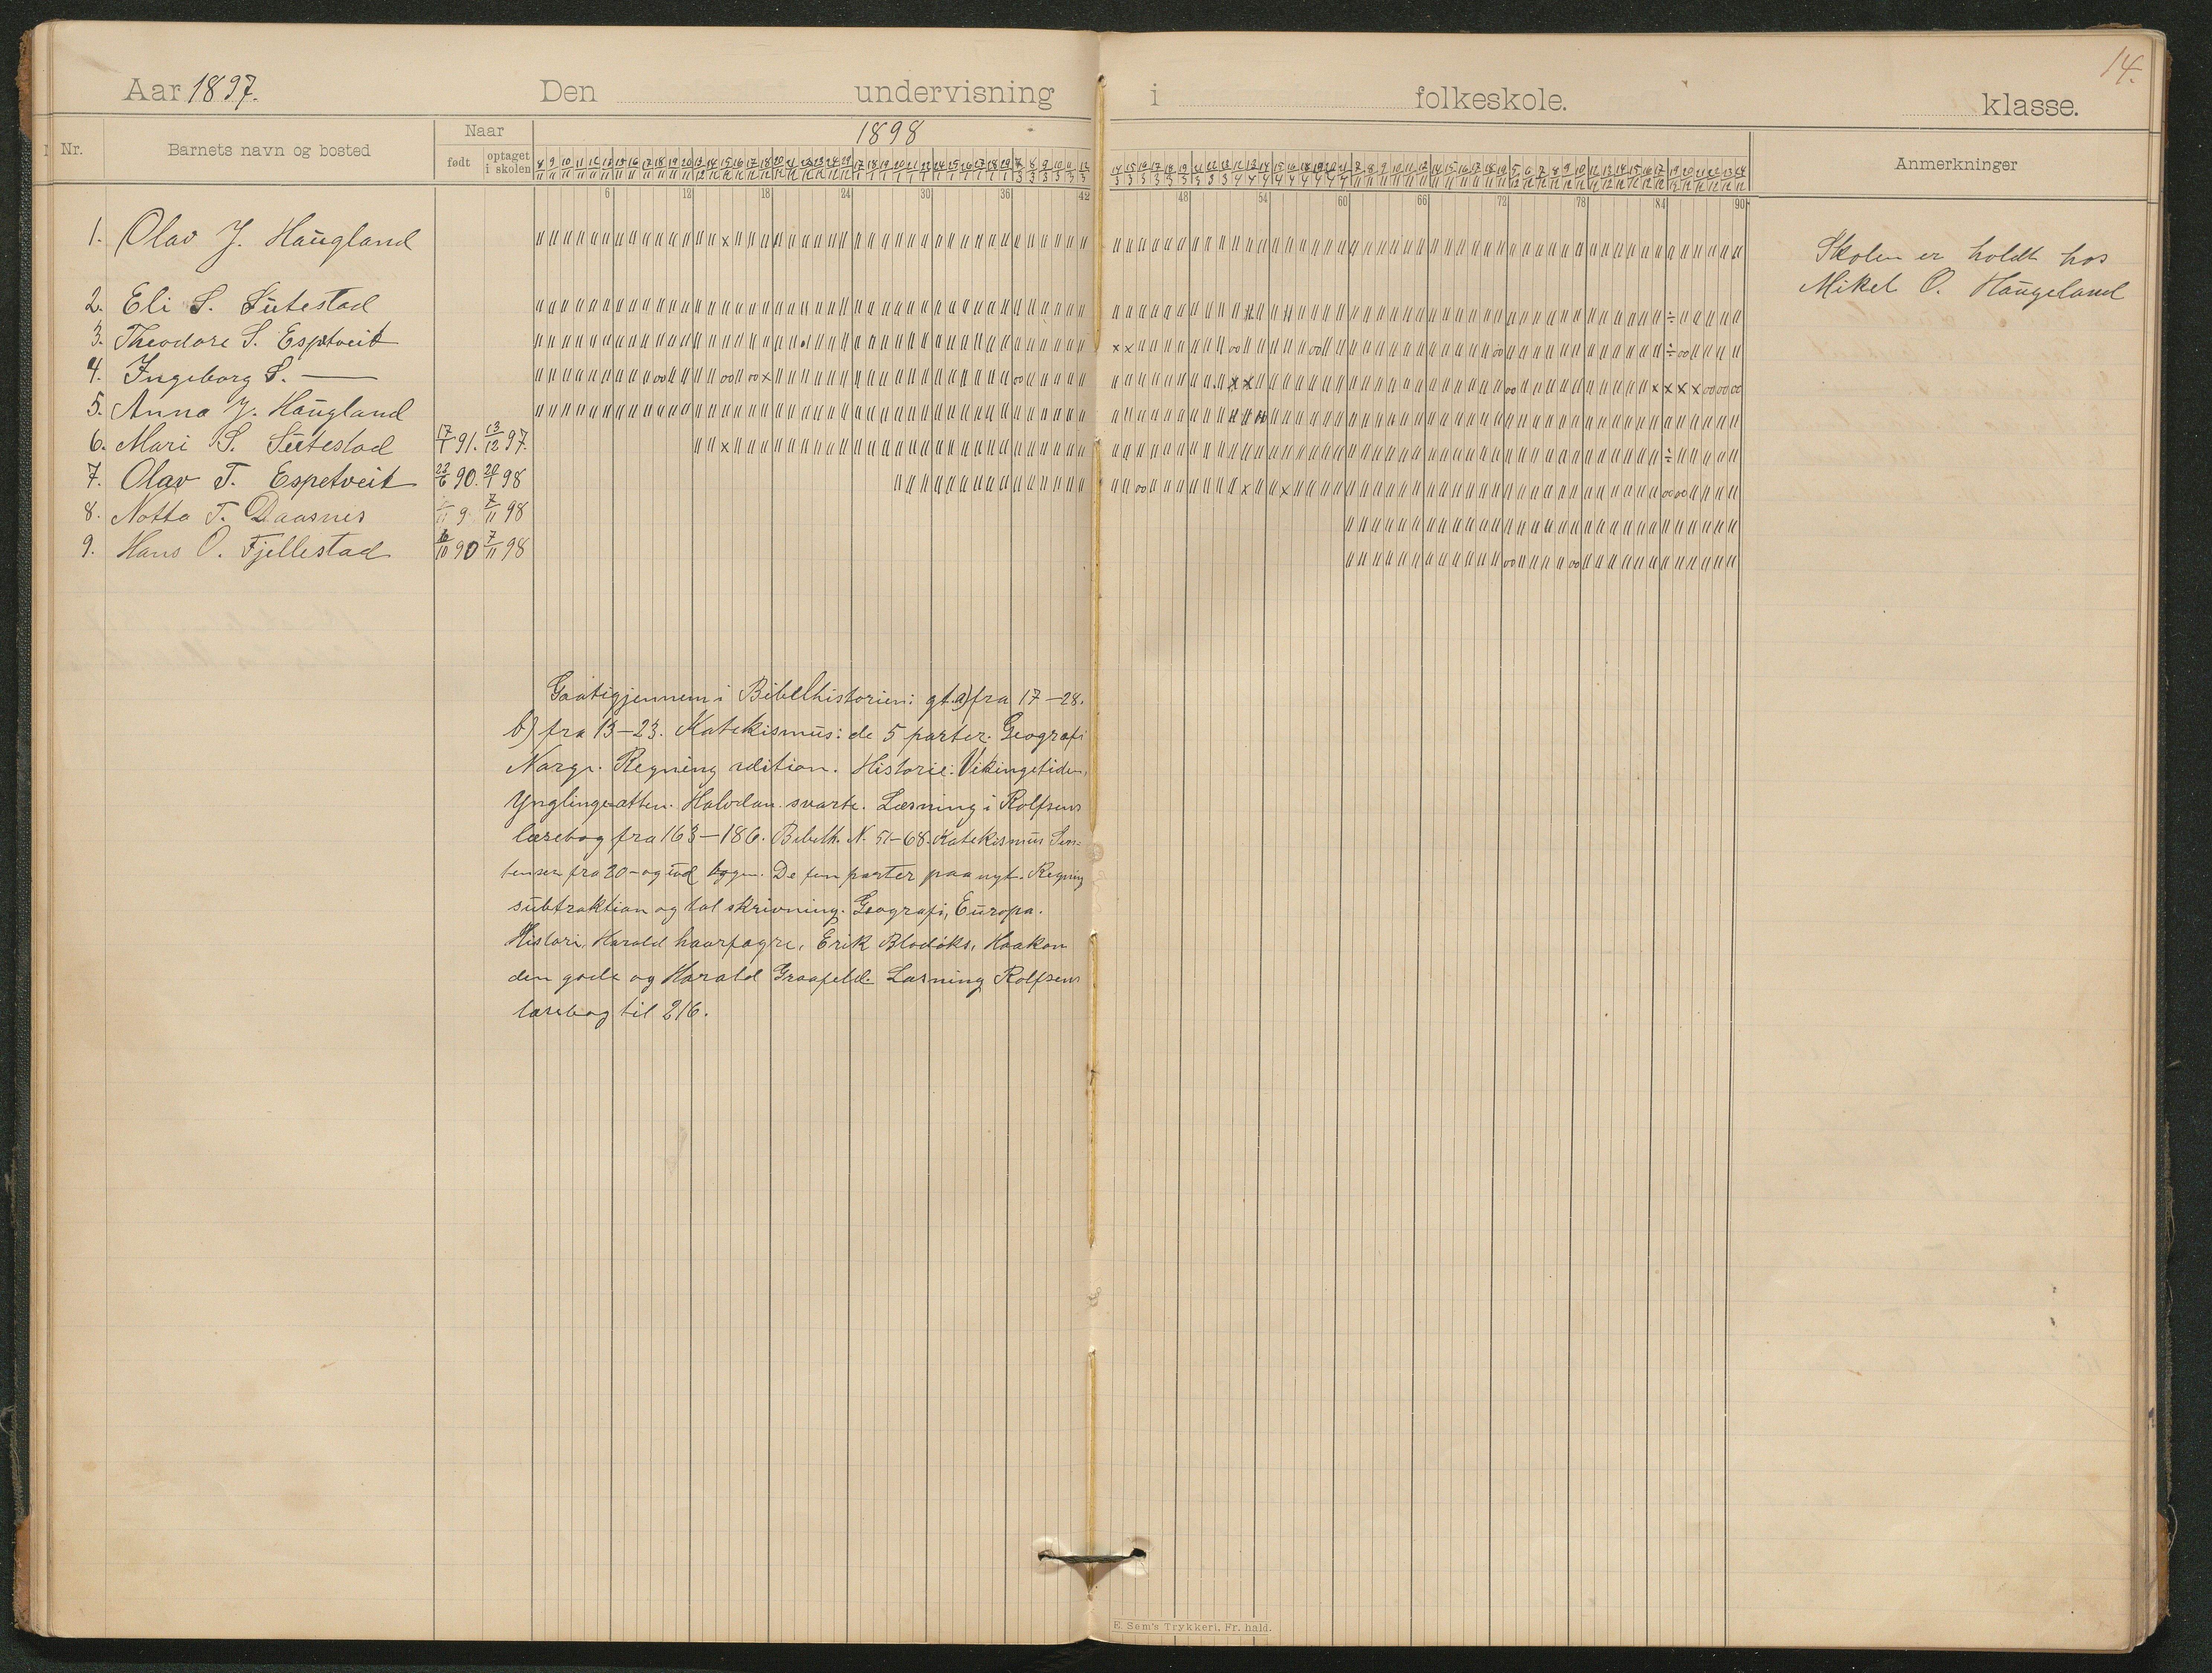 14.
Aar 1897. Den undervisning i folkeskole. klasse.
Nr. Barnets navn og bosted Naar født optaget i skolen 1898 Anmerkninger
6 12 18 24 30 36 42 48 54 60 66 72 78 84 90
1. Olav J. Haugland
Skolen er holdt hos
Mikel O. Haugeland
2. Eli S. Sutestad
3. Theodore S. Espetveit
4. Ingeborg S. —
5. Anna J. Haugland
6. Mari S. Sutestad 17/1 91. 13/12 97.
7. Olav T. Espetveit 22/6 90. 20/1 98
8. Notto T. Daasnes 7/11 98
9. Hans O. Fjellestad 16/10 90 7/11 98
Gaatigjennem i Bibelhistorien: gt. a) fra 17–28.
b) fra 13–23. Katekismus: de 5 parter. Geografi
Norge. Regning adition. Historie: Vikingetiden,
Ynglingeætten. Halvdan svarte. Læsning i Rolfsens
læsebog fra 163–186. Bibelh. N. 51–68. Katekismus Sen=
tensen fra 20– og ud bogen. De fem parter paa nyt. Regning
subtraktion og tal skrivning. Geografi, Europa.
Histori, Harald haarfagre, Erik Blodøks, Haakon
den gode og Harald Graafeld. Læsning Rolfsens
læsebog til 216.
E. Sem's Trykkeri, Fr. hald.